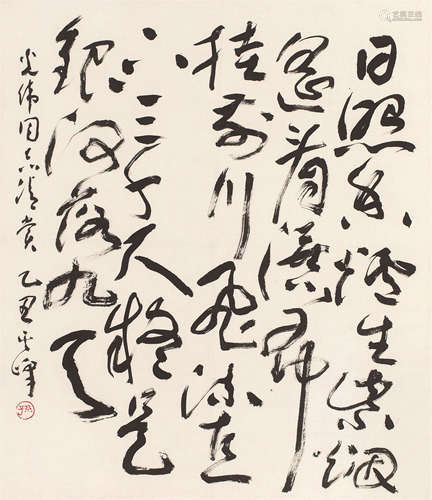 日照香炉生紫烟
遥看瀑布
挂前川飞流直
下三千尺疑是
银河落九天
光伟同志清赏 乙丑